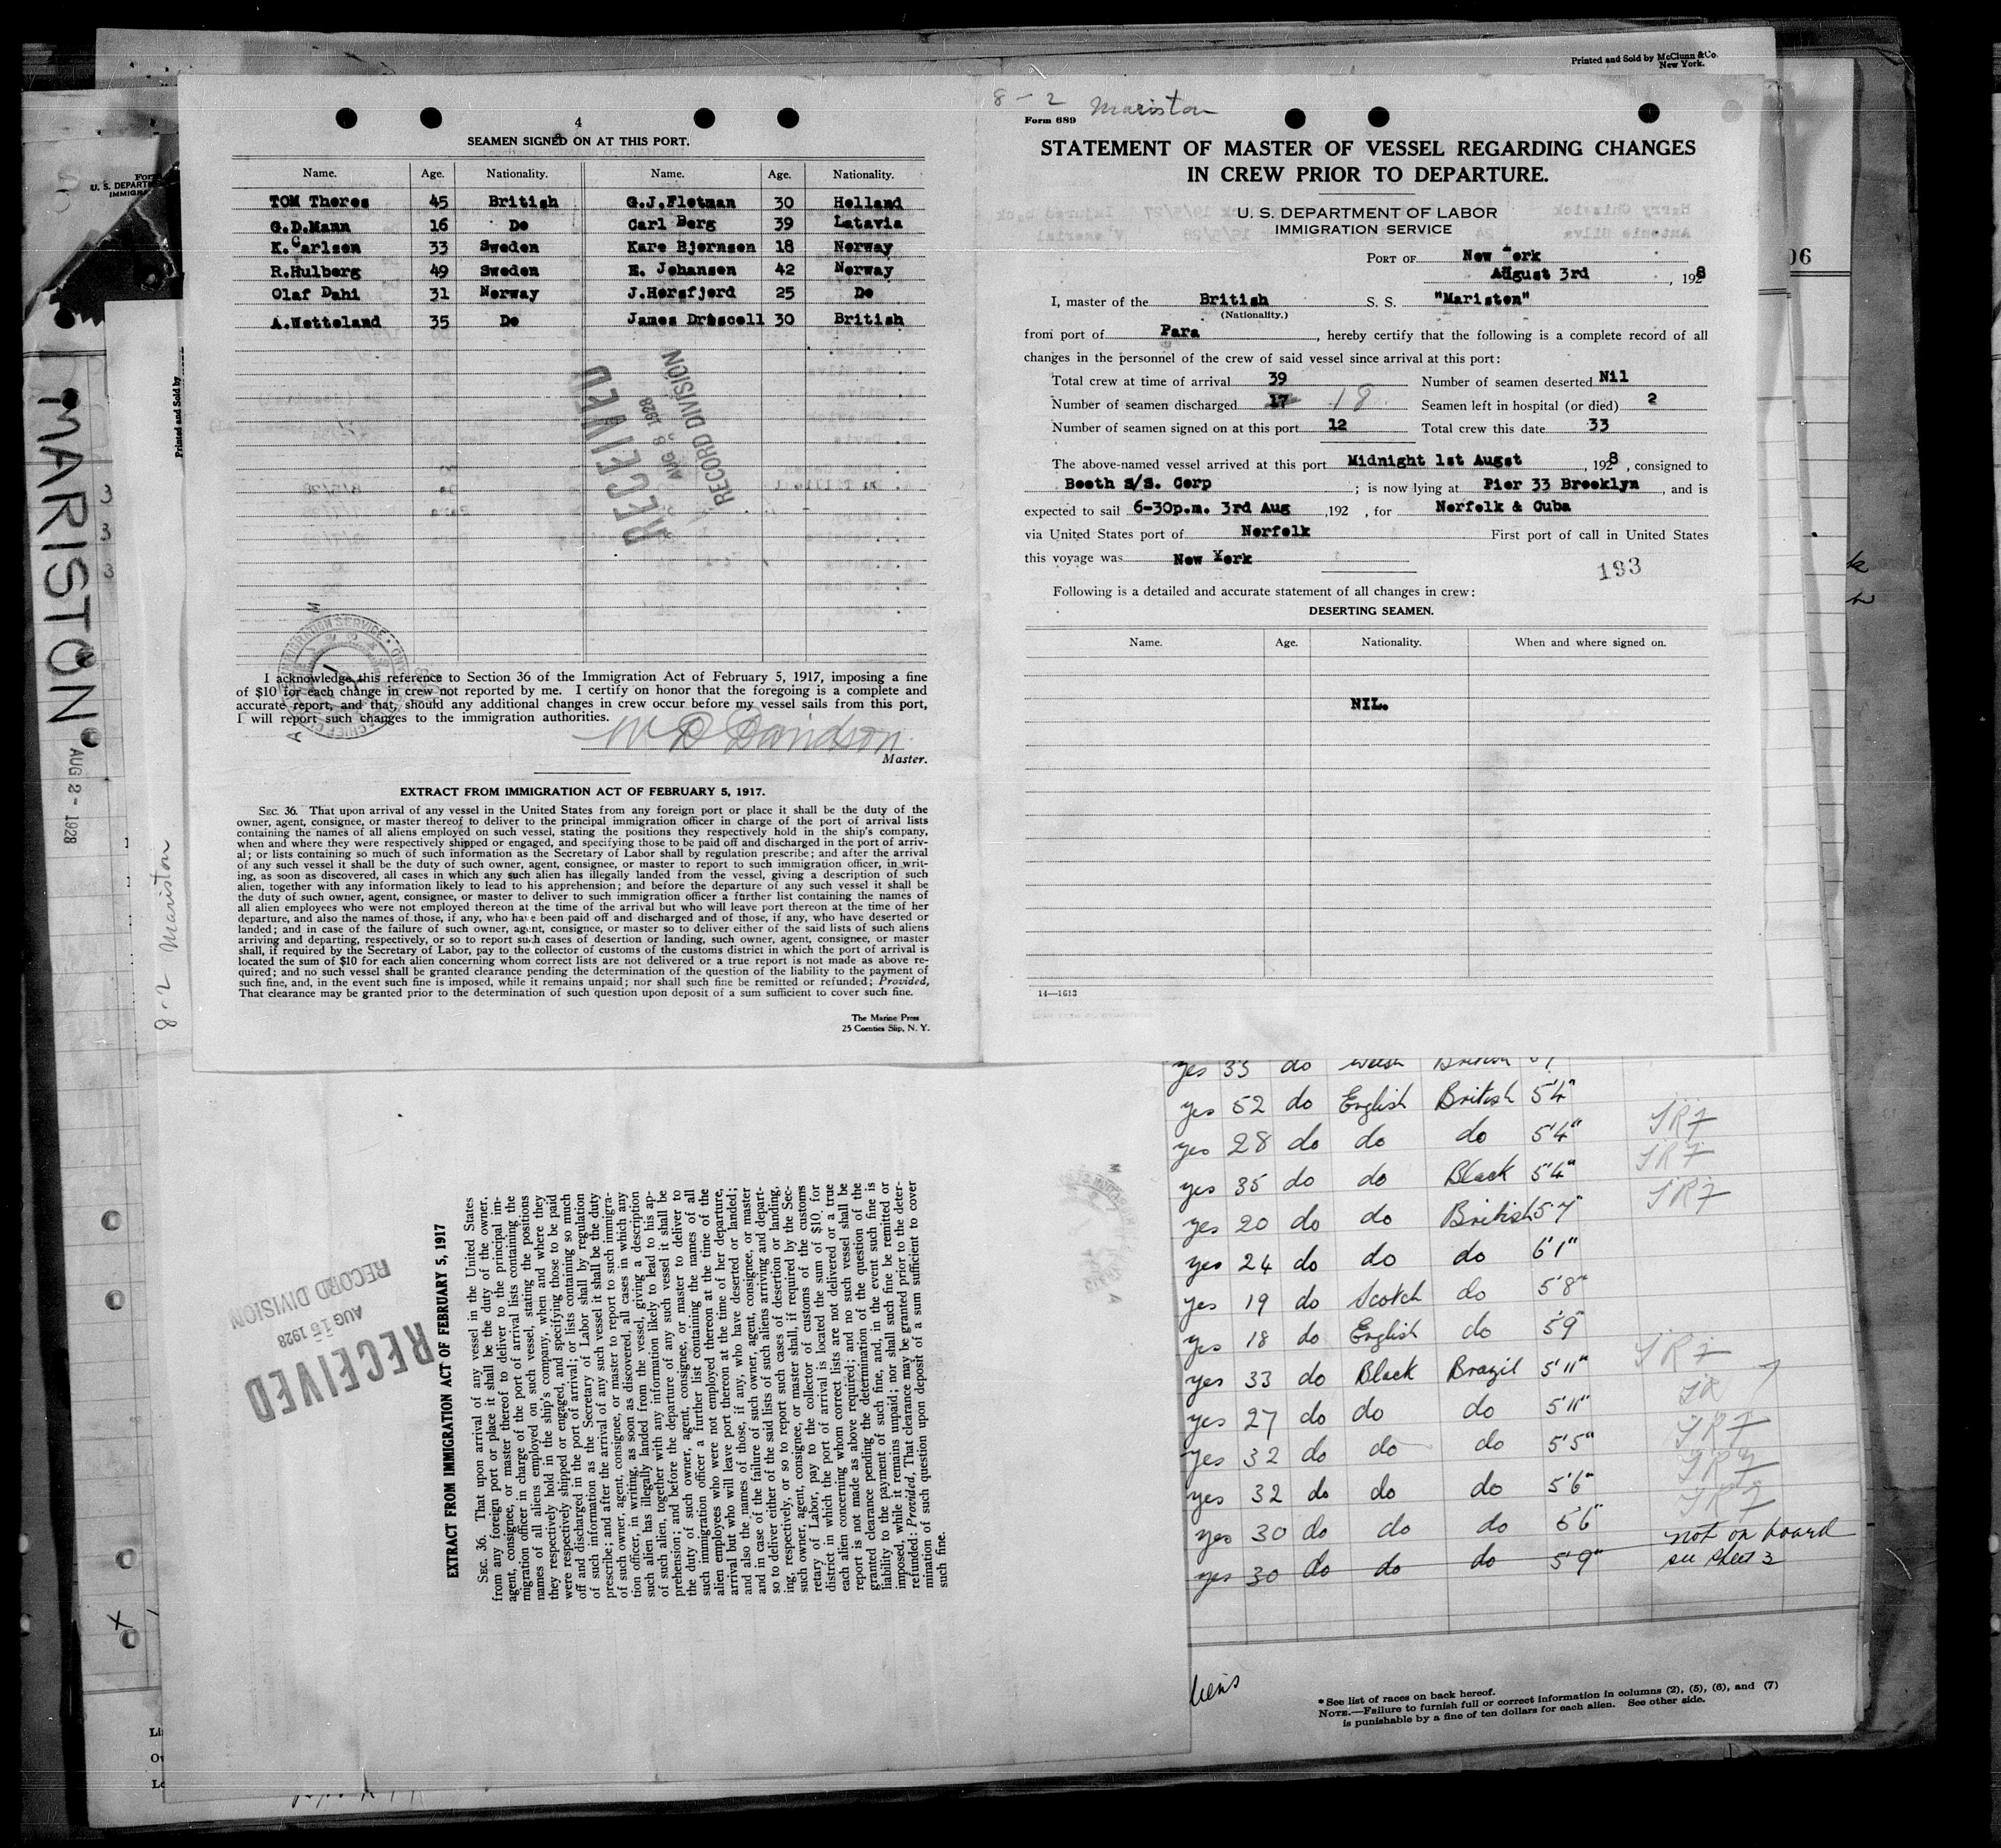 Printed and Sold by McClunn & Co.
New York.
4
SEAMEN SIGNED ON AT THIS PORT.
Name. Age. Nationality. Name. Age. Nationality.
TOM Theres 45 British G.J.Fletman 30 Holland
G.D.Mann 16 De Carl Berg 39 Latavia
K.Carlsen 33 Sweden Kare Bjernsen 18 Norway
R.Hulberg 49 Sweden E. Johansen 42 Norway
Olaf Dahi 31 Norway J.Horsfjord 25 De
A.Wetteland 35 De James Driscoll 30 British
RECEIVED
AUG 8 1928
RECORD DIVISION
I acknowledge this reference to Section 36 of the Immigration Act of February 5, 1917, imposing a fine
of $10 for each change in crew not reported by me. I certify on honor that the foregoing is a complete and
accurate report, and that, should any additional changes in crew occur before my vessel sails from this port,
I will report such changes to the immigration authorities.
Davidson
Master.
EXTRACT FROM IMMIGRATION ACT OF FEBRUARY 5, 1917.
SEC. 36. That upon arrival of any vessel in the United States from any foreign port or place it shall be the duty of the
owner, agent, consignee, or master thereof to deliver to the principal immigration officer in charge of the port of arrival lists
containing the names of all aliens employed on such vessel, stating the positions they respectively hold in the ship's company,
when and where they were respectively shipped or engaged, and specifying those to be paid off and discharged in the port of arriv-
al; or lists containing so much of such information as the Secretary of Labor shall by regulation prescribe; and after the arrival
of any such vessel it shall be the duty of such owner, agent, consignee, or master to report to such immigration officer, in writ-
ing, as soon as discovered, all cases in which any such alien has illegally landed from the vessel, giving a description of such
alien, together with any information likely to lead to his apprehension; and before the departure of any such vessel it shall be
the duty of such owner, agent, consignee, or master to deliver to such immigration officer a further list containing the names of
all alien employees who were not employed thereon at the time of the arrival but who will leave port thereon at the time of her
departure, and also the names of those, if any, who have been paid off and discharged and of those, if any, who have deserted or
landed; and in case of the failure of such owner, agent, consignee, or master so to deliver either of the said lists of such aliens
arriving and departing, respectively, or so to report such cases of desertion or landing, such owner, agent, consignee, or master
shall, if required by the Secretary of Labor, pay to the collector of customs of the customs district in which the port of arrival is
located the sum of $10 for each alien concerning whom correct lists are not delivered or a true report is not made as above re-
quired; and no such vessel shall be granted clearance pending the determination of the question of the liability to the payment of
such fine, and, in the event such fine is imposed, while it remains unpaid; nor shall such fine be remitted or refunded; Provided,
That clearance may be granted prior to the determination of such question upon deposit of a sum sufficient to cover such fine.
The Marine Press
25 Coenties Slip, N. Y.
8 - 2 Mariston
Form 689
STATEMENT OF MASTER OF VESSEL REGARDING CHANGES
IN CREW PRIOR TO DEPARTURE.
U. S. DEPARTMENT OF LABOR
IMMIGRATION SERVICE
PORT OF New York
August 3rd , 1928
I, master of the British S. S. "Mariston"
(Nationality.)
from port of Para , hereby certify that the following is a complete record of all
changes in the personnel of the crew of said vessel since arrival at this port:
Total crew at time of arrival 39 Number of seamen deserted Nil
Number of seamen discharged 17 18 Seamen left in hospital (or died) 2
Number of seamen signed on at this port 12 Total crew this date 33
The above-named vessel arrived at this port Midnight 1st Augst , 1928 , consigned to
Booth S/S. Corp ; is now lying at Pier 33 Brooklyn , and is
expected to sail 6-30p.m. 3rd Aug ,192 , for Norfolk & Cuba
via United States port of Norfolk First port of call in United States
this voyage was New York
193
Following is a detailed and accurate statement of all changes in crew:
DESERTING SEAMEN.
Name. Age. Nationality. When and where signed on.
NIL.
14—1613
MARISTON
AUG 2 - 1928
Printed and Sold by
8-2 Mariston
3
3
3
06
RECEIVED
AUG 15 1928
RECORD DIVISION
EXTRACT FROM IMMIGRATION ACT OF FEBRUARY 5, 1917
SEC. 36. That upon arrival of any vessel in the United States
from any foreign port or place it shall be the duty of the owner,
agent, consignee, or master thereof to deliver to the principal im-
migration officer in charge of the port of arrival lists containing the
names of all aliens employed on such vessel, stating the positions
they respectively hold in the ship's company, when and where they
were respectively shipped or engaged, and specifying those to be paid
off and discharged in the port of arrival; or lists containing so much
of such information as the Secretary of Labor shall by regulation
prescribe; and after the arrival of any such vessel it shall be the duty
of such owner, agent, consignee, or master to report to such immigra-
tion officer, in writing, as soon as discovered, all cases in which any
such alien has illegally landed from the vessel, giving a description
of such alien, together with any information likely to lead to his ap-
prehension; and before the departure of any such vessel it shall be
the duty of such owner, agent, consignee, or master to deliver to
such immigration officer a further list containing the names of all
alien employees who were not employed thereon at the time of the
arrival but who will leave port thereon at the time of her departure,
and also the names of those, if any, who have deserted or landed;
and in case of the failure of such owner, agent, consignee, or master
so to deliver either of the said lists of such aliens arriving and depart-
ing, respectively, or so to report such cases of desertion or landing,
such owner, agent, consignee, or master shall, if required by the Sec-
retary of Labor, pay to the collector of customs of the customs
district in which the port of arrival is located the sum of $10 for
each alien concerning whom correct lists are not delivered or a true
report is not made as above required; and no such vessel shall be
granted clearance pending the determination of the question of the
liability to the payment of such fine, and, in the event such fine is
imposed, while it remains unpaid; nor shall such fine be remitted or
refunded: Provided, That clearance may be granted prior to the deter-
mination of such question upon deposit of a sum sufficient to cover
such fine.
yes 33 do Welsh British
yes 52 do English British 5'4"
yes 28 do do do 5'4"
yes 35 do do Black 5'4"
yes 20 do do British 5'7
yes 24 do do do 6'1"
yes 19 do Scotch do 5'8"
yes 18 do English do 5'9
yes 33 do Black Brazil 5'11"
yes 27 do do do 5'11"
yes 32 do do do 5'5"
yes 32 do do do 5'6"
yes 30 do do do 5'6
yes 30 do do do 5'9" not on board
see sheet 3
*See list of races on back hereof.
NOTE.—Failure to furnish full or correct information in columns (2), (5), (6), and (7)
is punishable by a fine of ten dollars for each alien. See other side.